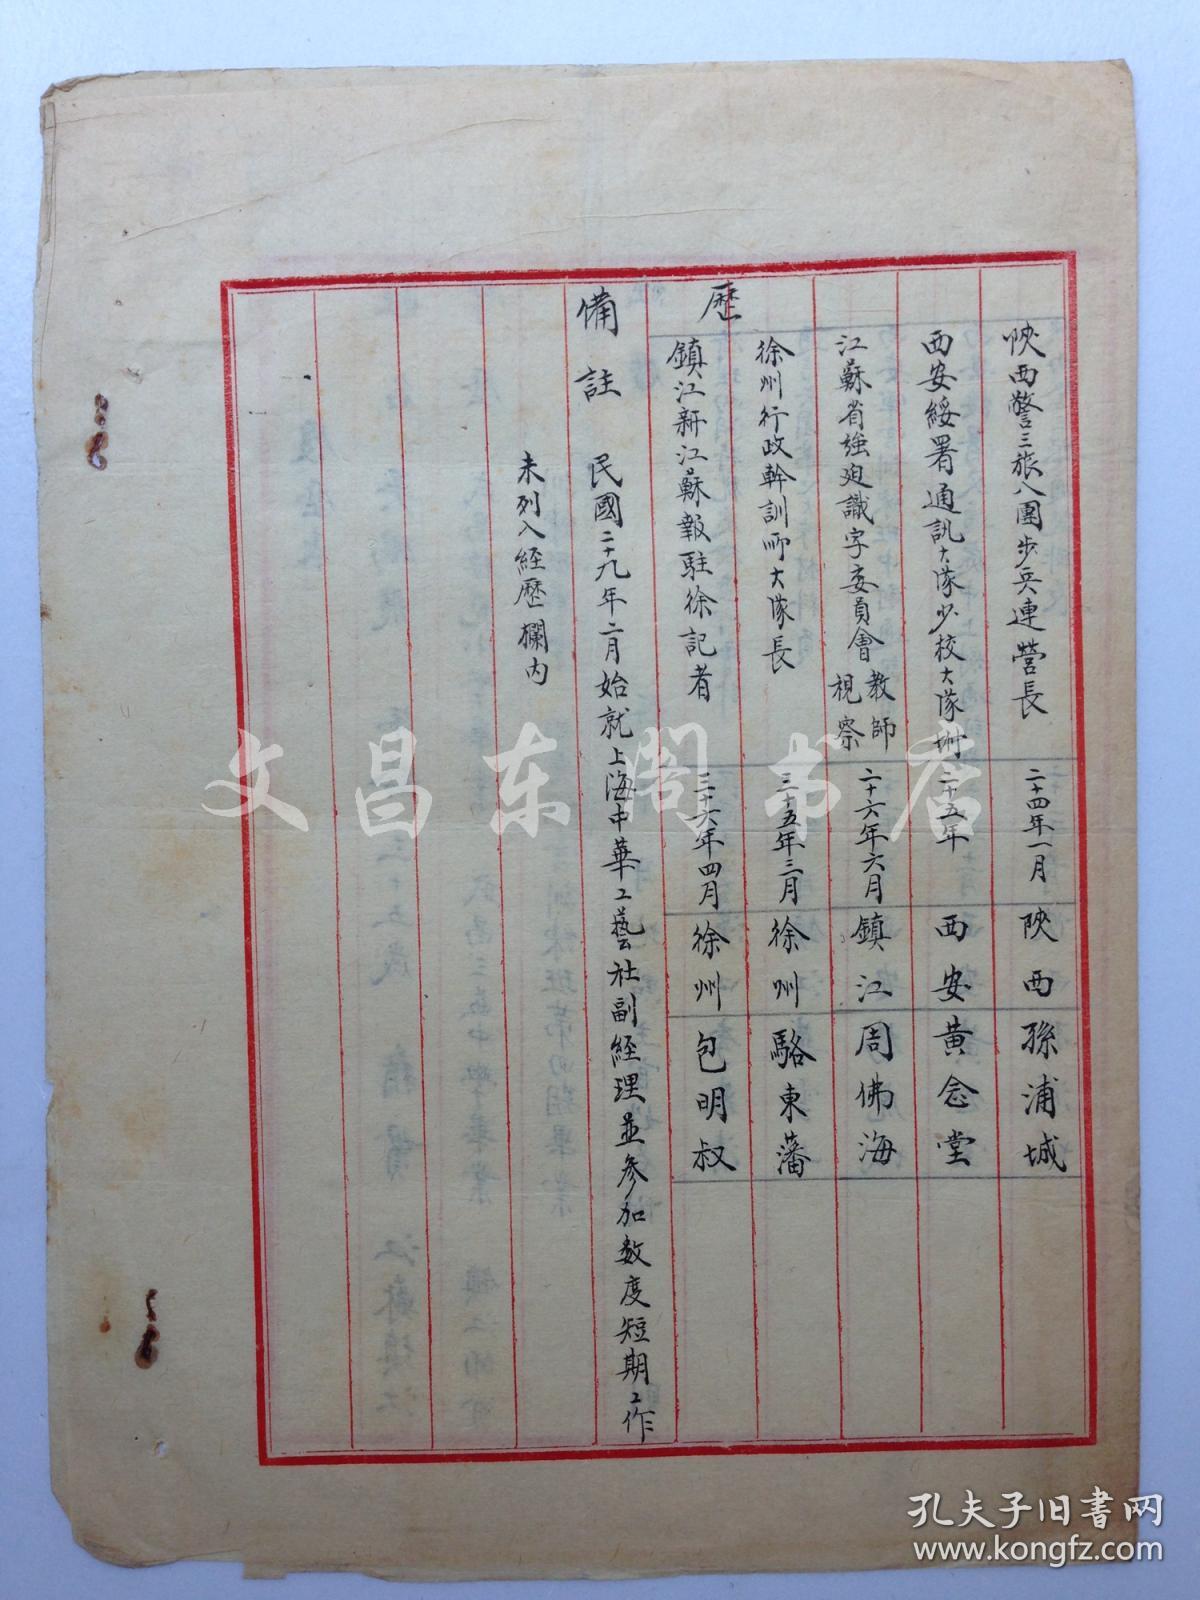 陝西警三旅八團步兵連營長 二十四年一月 陝西 孫浦城
西安綏署通訊大隊少校大隊附 二十五年 西安 黃念堂
江蘇省強迫識字委員會教師視察 二十六年六月 鎮江 周佛海
歷
徐州行政幹訓所大隊長 三十五年三月 徐州 駱東藩
鎮江新江蘇報駐徐記者 三十六年四月 徐州 包明叔
備註 民國二十九年二月始就上海中華工藝社副經理並參加數度短期工作
未列入經歷欄内
文昌东阁书店
孔夫子旧书网
www.kongfz.com